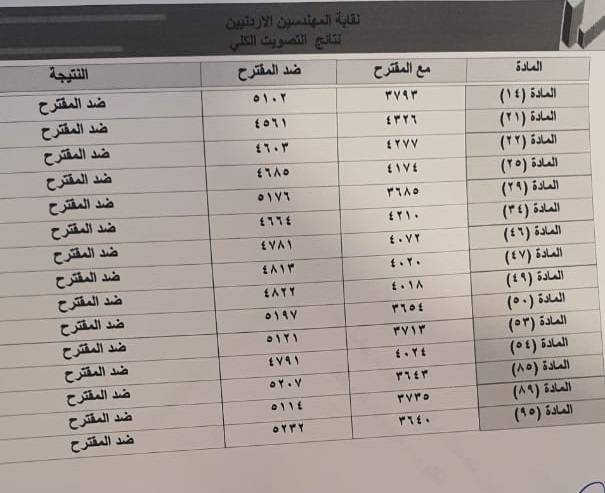 نقابة المهندسين الاردنيين
نتائج التصويت الكلي
المادة مع المقترح ضد المقترح النتيجة
المادة (١٤) ٣٧٩٣ ٥١٠٢ ضد المقترح
المادة (٢١) ٤٣٢٦ ٤٥٦١ ضد المقترح
المادة (٢٢) ٤٢٧٧ ٤٦٠٣ ضد المقترح
المادة (٢٥) ٤١٧٤ ٤٦٨٥ ضد المقترح
المادة (٢٩) ٣٦٨٥ ٥١٧٦ ضد المقترح
المادة (٣٤) ٤٢١٠ ٤٦٦٤ ضد المقترح
المادة (٤٦) ٤٠٧٢ ٤٧٨١ ضد المقترح
المادة (٤٧) ٤٠٢٠ ٤٨١٣ ضد المقترح
المادة (٤٩) ٤٠١٨ ٤٨٢٢ ضد المقترح
المادة (٥٠) ٣٦٥٤ ٥١٩٧ ضد المقترح
المادة (٥٣) ٣٧١٣ ٥١٢١ ضد المقترح
المادة (٥٤) ٤٠٢٤ ٤٧٩١ ضد المقترح
المادة (٨٥) ٣٦٤٣ ٥٢٠٧ ضد المقترح
المادة (٨٩) ٣٧٣٥ ٥١١٤ ضد المقترح
المادة (٩٥) ٣٦٤٠ ٥٢٣٢ ضد المقترح